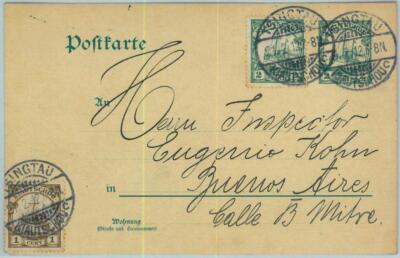 Postkarte
TSINGTAU
KIAUTSCHOU
2
TSINGTAU
KIAUTSCHOU
2
An
Herrn Inspector
Eugenio Kohn
in Buenos Aires
Calle B Mitre.
TSINGTAU
KIAUTSCHOU
1 CENT 1
Wohnung
(Straße und Hausnummer)